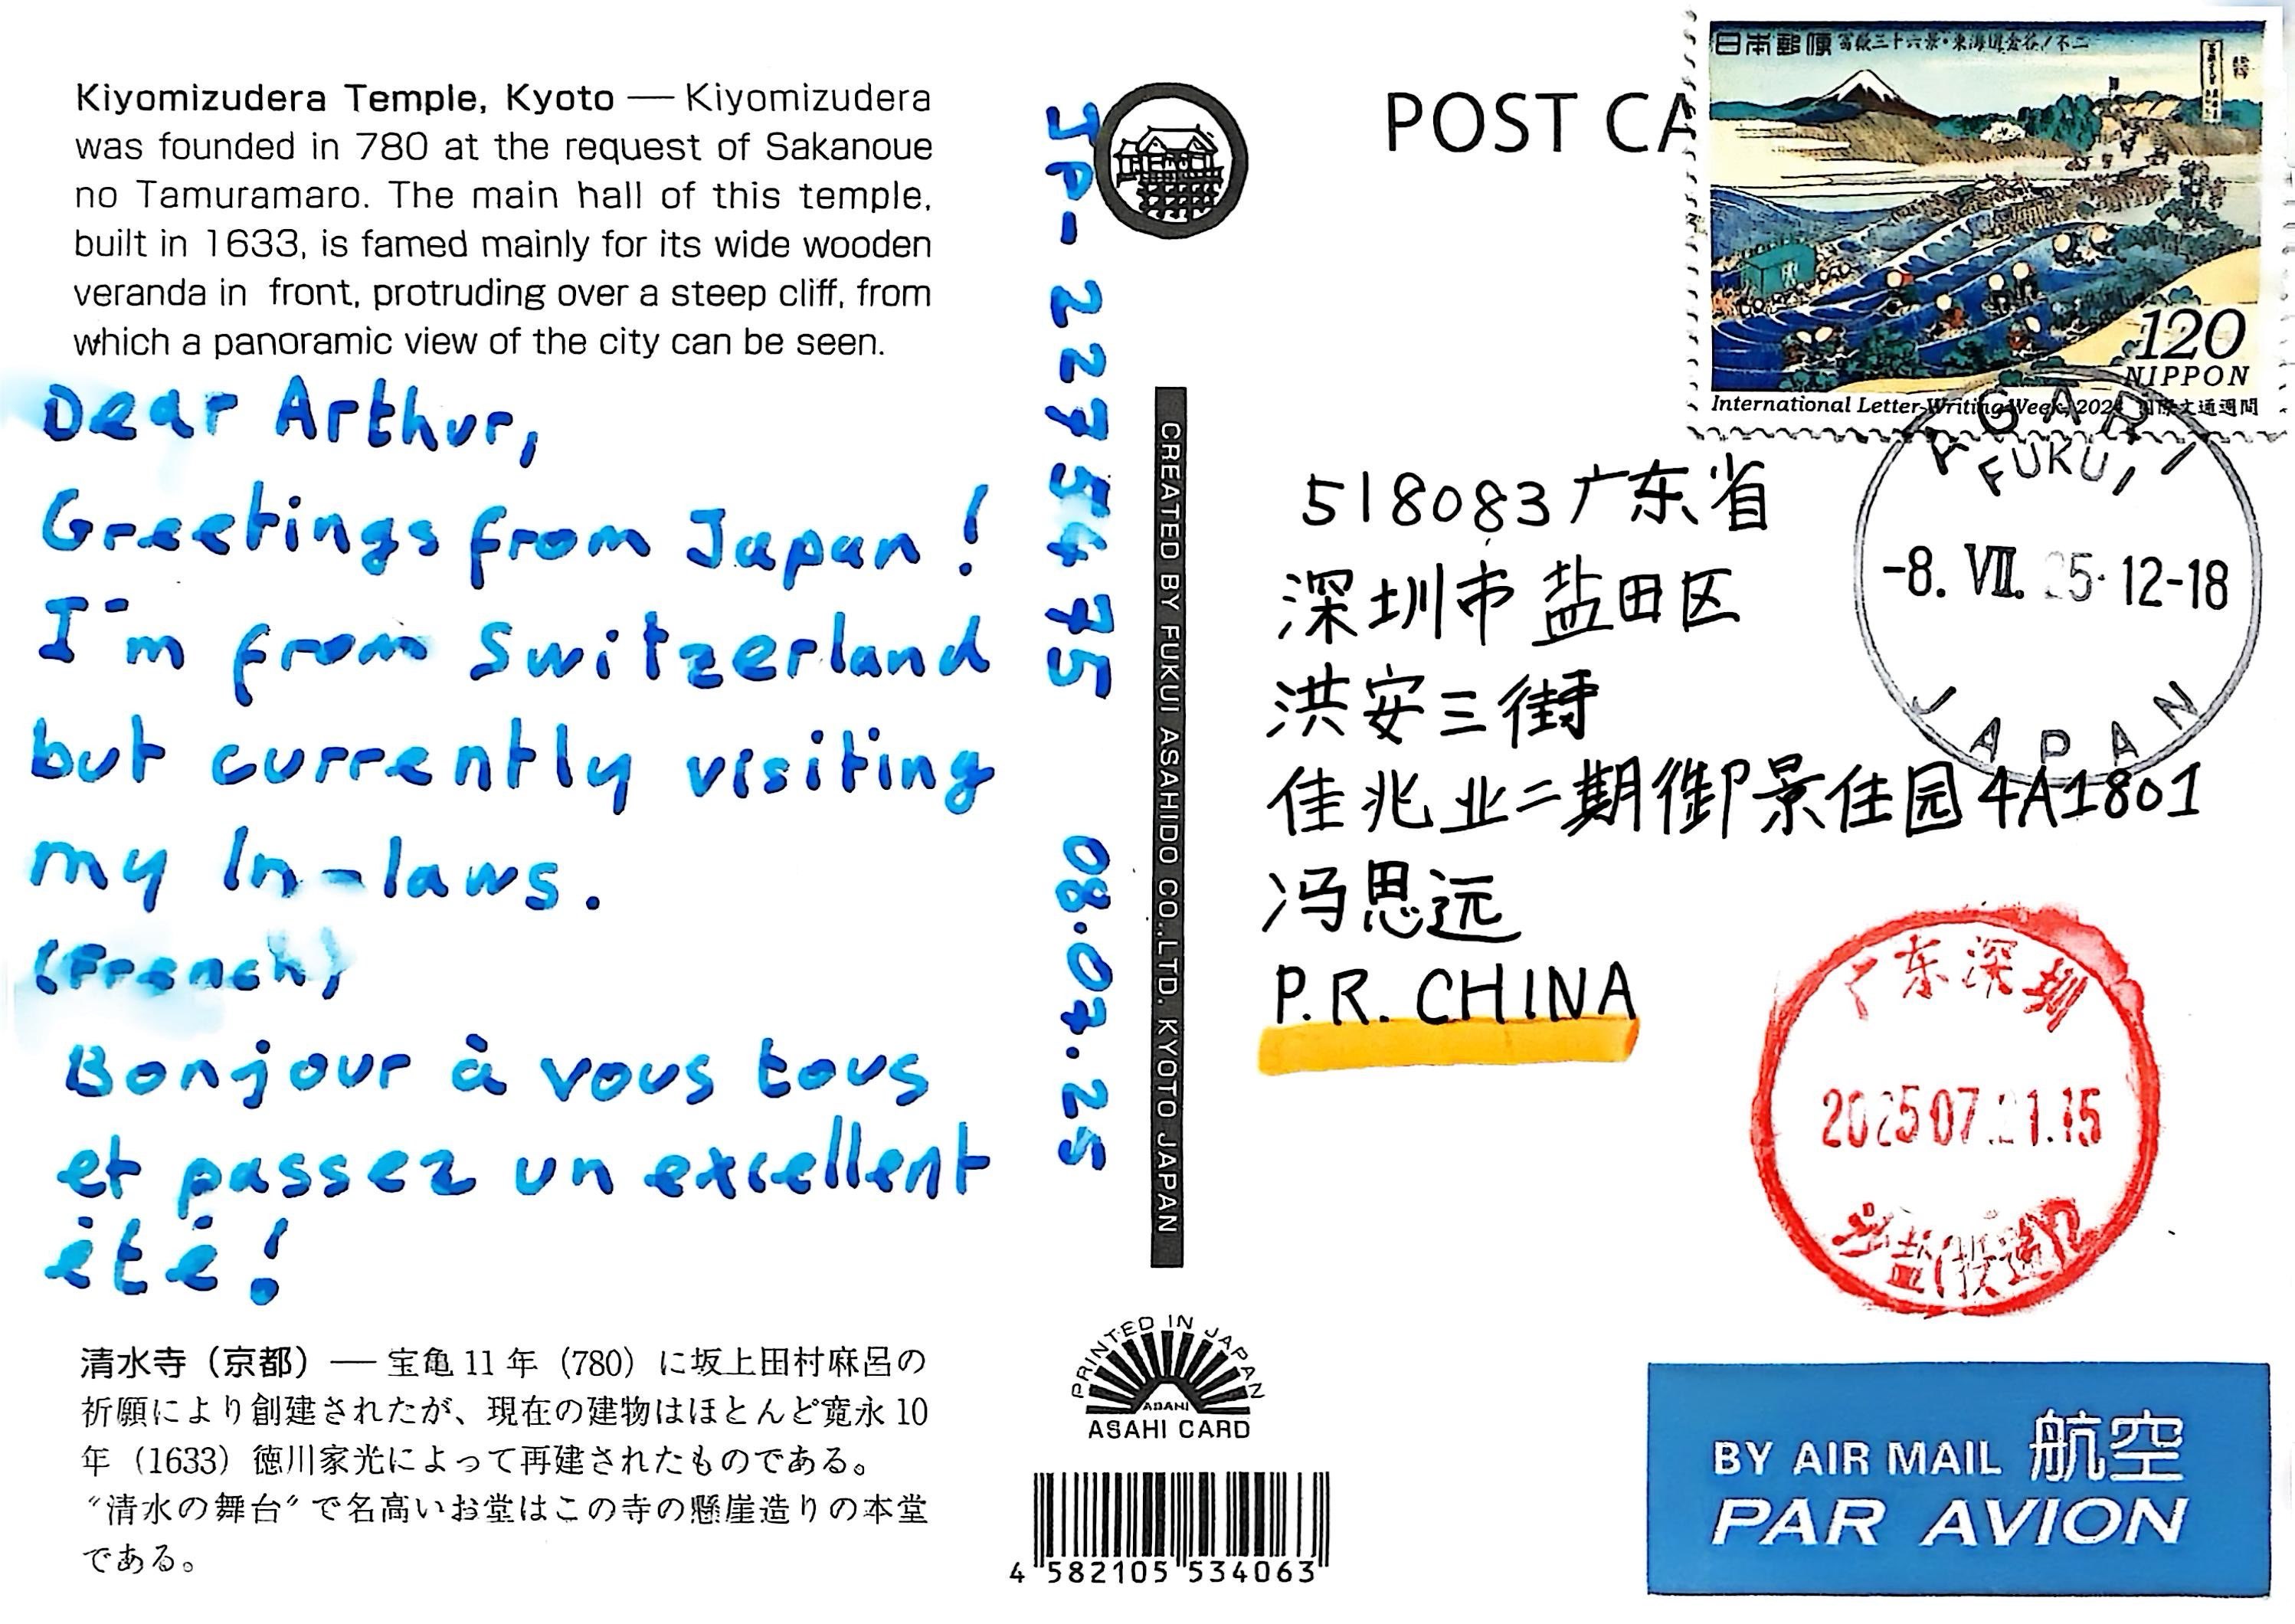 Kiyomizudera Temple, Kyoto — Kiyomizudera
was founded in 780 at the request of Sakanoue
no Tamuramaro. The main hall of this temple,
built in 1633, is famed mainly for its wide wooden
veranda in front, protruding over a steep cliff, from
which a panoramic view of the city can be seen.
Dear Arthur,
Greetings from Japan!
I'm from Switzerland
but currently visiting
my In-laws.
(French)
Bonjour à vous tous
et passez un excellent
été!
清水寺（京都）— 宝亀11年（780）に坂上田村麻呂の
祈願により創建されたが、現在の建物はほとんど寛永10
年（1633）徳川家光によって再建されたものである。
“清水の舞台”で名高いお堂はこの寺の懸崖造りの本堂
である。
JP-2275475
08.07.25
CREATED BY FUKUI ASAHIDO CO.,LTD. KYOTO JAPAN
PRINTED IN JAPAN
ASAHI
ASAHI CARD
4 582105 534063
POST CA
日本郵便 冨嶽三十六景・東海道金谷ノ不二
120
NIPPON
International Letter-Writing Week, 2024 国際文通週間
AGARI
FUKUI
-8. VII. 25. 12-18
JAPAN
518083 广东省
深圳市盐田区
洪安三街
佳兆业二期御景佳园4A1801
冯思远
P.R. CHINA
广东深圳
2025 07 21.15
BY AIR MAIL 航空
PAR AVION